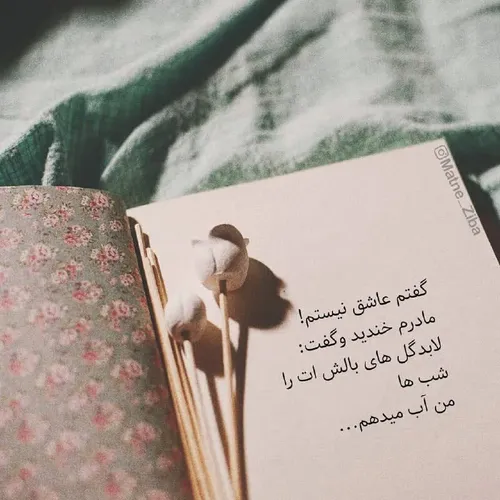 @Matne_Ziba
گفتم عاشق نیستم!
مادرم خندید وگفت:
لابدگل های بالش ات را
شب ها
من آب میدهم...